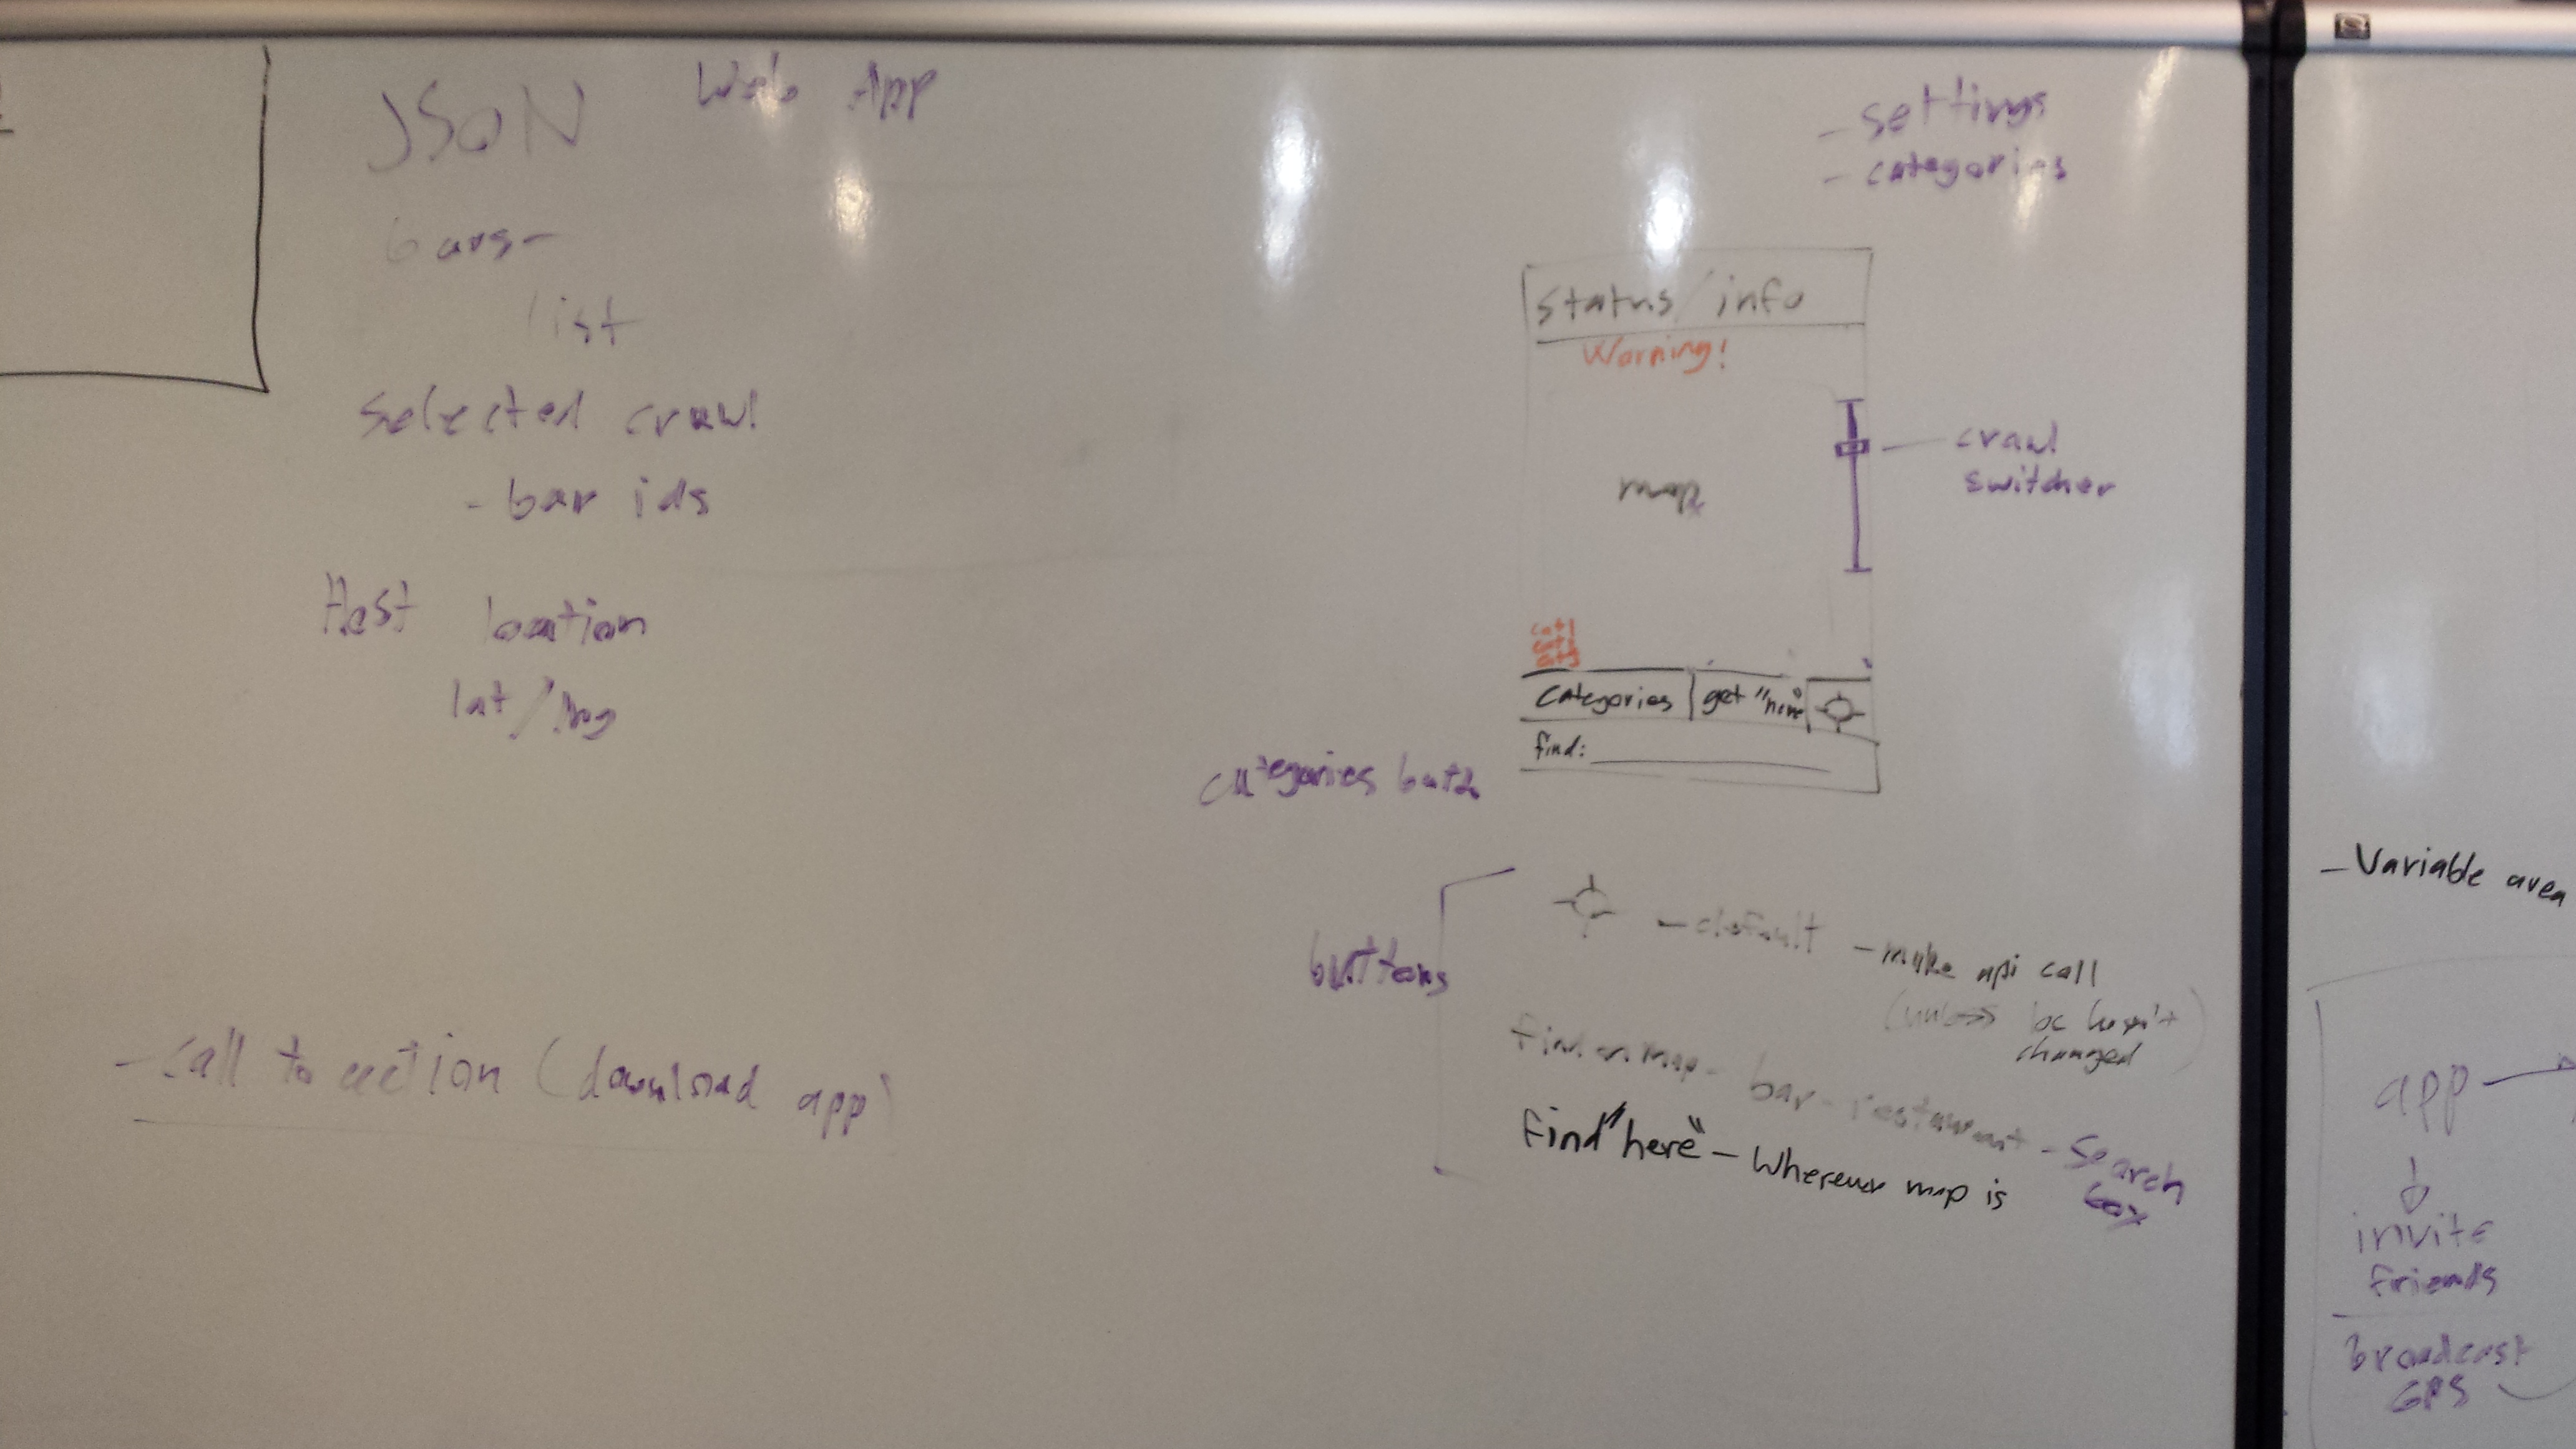 JSON Web App
bars-
list
selected crawl
- bar ids
Host location
lat/lng
- call to action (download app)
- settings
- categories
status/info
Warning!
map
crawl
switcher
cat1
cat2
cat3
categories
get "here"
find:
categories
buttons
- default - make api call
(unless loc hasn't
changed)
find on map - bar - restaurant - search
box
find "here" - Wherever map is
- Variable area
app
invite
friends
broadcast
GPS